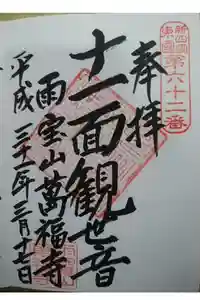 第六十二番
奉拝
十一面観世音
雨宝山萬福寺
平成三十一年三月十七日